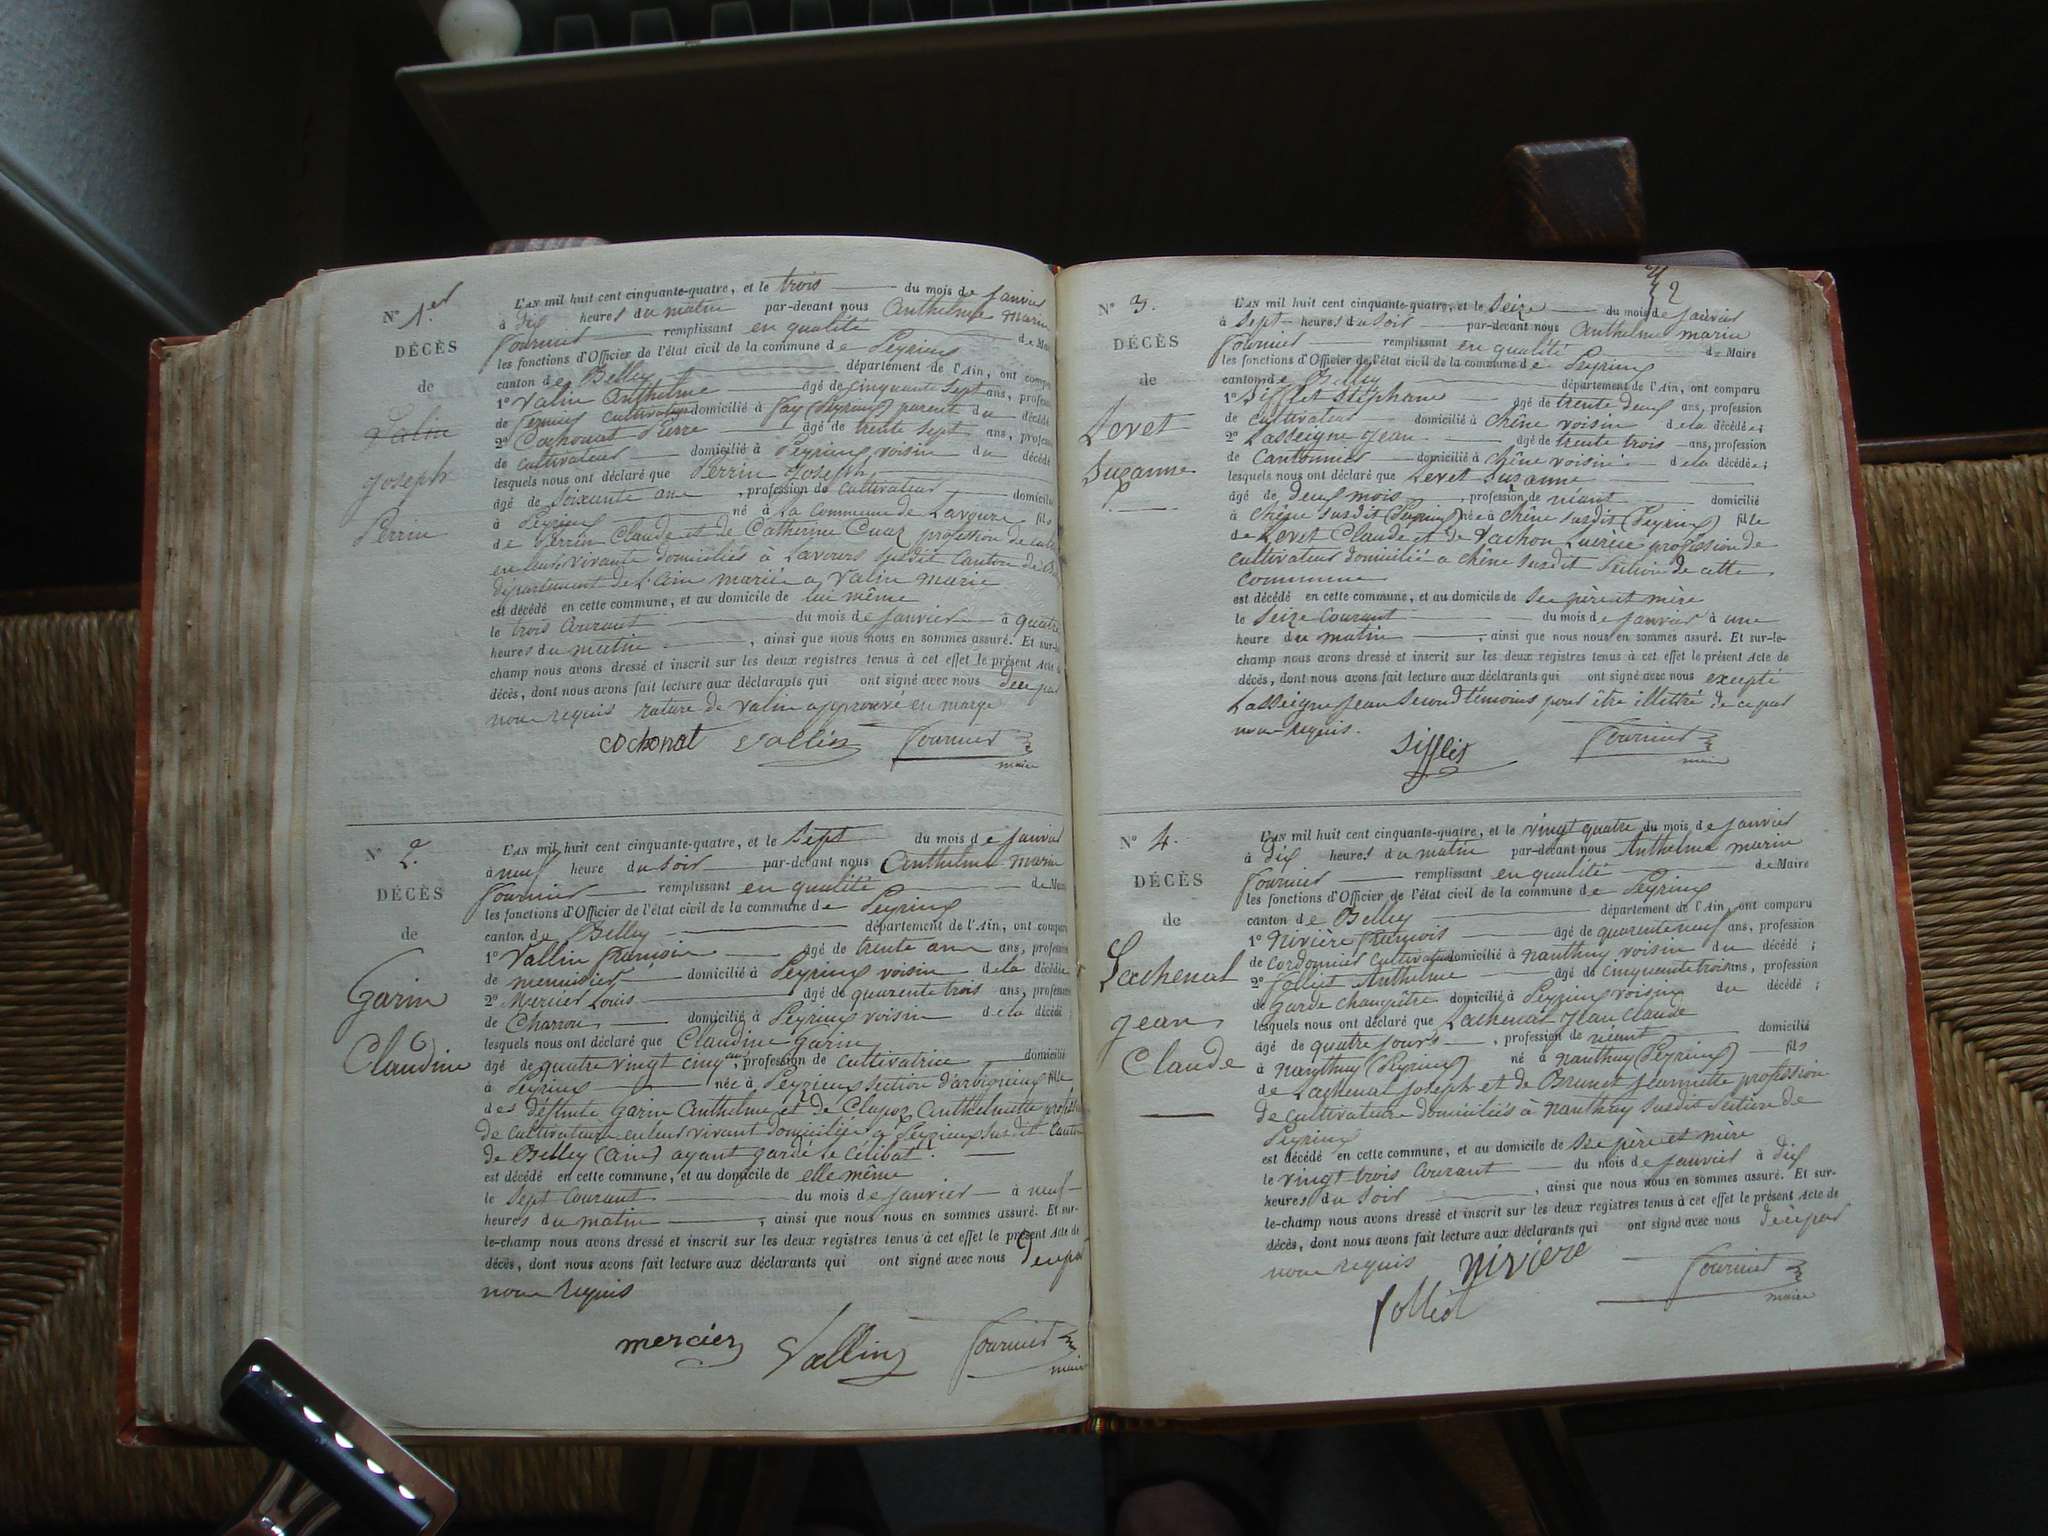 N° 1er
DÉCÈS
de
Valin
Joseph
Perrin
L'AN mil huit cent cinquante-quatre, et le trois du mois de Janvier
à dix heures du matin par-devant nous Anthelme Marin
Fournier remplissant en qualité de Maire
les fonctions d'Officier de l'état civil de la commune de Peyrieu
canton de Belley département de l'Ain, ont comparu
1° Valin Anthelme âgé de cinquante sept ans, profession
de cultivateur domicilié à Fay (Peyrieu) parent du décédé
2° Cochonat Pierre âgé de trente sept ans, profession
de cultivateur domicilié à Peyrieu voisin du décédé
lesquels nous ont déclaré que Perrin Joseph
âgé de soixante ans, profession de cultivateur domicilié
à Peyrieu né à la Commune de Lavours fils
de Perrin Claude et de Catherine Cuaz profession de
en leurs vivants domiciliés à Lavours susdit Canton de
département de l'ain marié a Valin Marie
est décédé en cette commune, et au domicile de lui même
le trois Courant du mois de Janvier à quatre
heures du matin, ainsi que nous nous en sommes assuré. Et sur-le-
champ nous avons dressé et inscrit sur les deux registres tenus à cet effet le présent Acte de
décès, dont nous avons fait lecture aux déclarants qui ont signé avec nous de ce par
nous requis rature de Valin approuvé en marge
cochonat Vallin Fournier
maire
N° 2.
DÉCÈS
de
Garin
Claudine
L'AN mil huit cent cinquante-quatre, et le sept du mois de Janvier
à neuf heure du soir par-devant nous Anthelme Marin
Fournier remplissant en qualité de Maire
les fonctions d'Officier de l'état civil de la commune de Peyrieu
canton de Belley département de l'Ain, ont comparu
1° Vallin François âgé de trente ans ans, profession
de menuisier domicilié à Peyrieu voisin de la décédée
2° Mercier Louis âgé de quarente trois ans, profession
de Charron domicilié à Peyrieu voisin de la décédé
lesquels nous ont déclaré que Claudine Garin
âgé de quatre vingt cinq ans, profession de cultivatrice domicilié
à Peyrieu née à Peyrieu section d'arbignieu fille
des défunts Garin Anthelme et de Clapoz Anthelmette
de cultivateurs en leur vivant domiciliés à Peyrieu susdit Canton
de Belley (ain) ayant gardé le célibat.
est décédé en cette commune, et au domicile de elle même
le sept Courant du mois de Janvier à neuf
heures du matin, ainsi que nous nous en sommes assuré. Et sur-
le-champ nous avons dressé et inscrit sur les deux registres tenus à cet effet le présent Acte de
décès, dont nous avons fait lecture aux déclarants qui ont signé avec nous De ce par
nous requis
mercier Vallin Fournier
maire
N° 3.
DÉCÈS
de
Levet
Suzanne
L'AN mil huit cent cinquante-quatre, et le seize du mois de Janvier
à sept heures du soir par-devant nous Anthelme Marin
Fournier remplissant en qualité de Maire
les fonctions d'Officier de l'état civil de la commune de Peyrieu
canton de Belley département de l'Ain, ont comparu
1° Sifflet Stéphane âgé de trente deux ans, profession
de cultivateur domicilié à Chêne voisin de la décédée;
2° Lasseigne Jean âgé de trente trois ans, profession
de Cantonnier domicilié à Chêne voisin de la décédée;
lesquels nous ont déclaré que Levet Suzanne
âgé de deux mois, profession de néant domicilié
à Chêne susdit (Peyrieu) née à Chêne susdit (Peyrieu) fille
de Levet Claude et de Vachon Lucrèce profession de
cultivateur domicilié a Chêne susdit Section de cette
commune
est décédé en cette commune, et au domicile de ses père et mère
le seize courant du mois de Janvier à une
heure du matin, ainsi que nous nous en sommes assuré. Et sur-le-
champ nous avons dressé et inscrit sur les deux registres tenus à cet effet le présent Acte de
décès, dont nous avons fait lecture aux déclarants qui ont signé avec nous excepté
Lasseigne Jean second témoins pour être illettré de ce par
nous requis.
Sifflet Fournier
maire
N° 4.
DÉCÈS
de
Lachenal
Jean
Claude
L'AN mil huit cent cinquante-quatre, et le vingt quatre du mois de Janvier
à dix heures du matin par-devant nous Anthelme Marin
Fournier remplissant en qualité de Maire
les fonctions d'Officier de l'état civil de la commune de Peyrieu
canton de Belley département de l'Ain, ont comparu
1° Nivière François âgé de quarente neuf ans, profession
de cordonnier cultivateur domicilié à Nanthuy voisin du décédé;
2° Folliet Anthelme âgé de cinquante trois ans, profession
de garde champêtre domicilié à Peyrieu voisin du décédé;
lesquels nous ont déclaré que Lachenal Jean Claude
âgé de quatre jours, profession de néant domicilié
à Nanthuy (Peyrieu) né à Nanthuy (Peyrieu) fils
de Lachenal Joseph et de Brunet Jeannette profession
de cultivateurs domiciliés à Nanthuy susdit Section de
Peyrieu
est décédé en cette commune, et au domicile de ses père et mère
le vingt trois Courant du mois de Janvier à dix
heures du soir, ainsi que nous nous en sommes assuré. Et sur-
le-champ nous avons dressé et inscrit sur les deux registres tenus à cet effet le présent Acte de
décès, dont nous avons fait lecture aux déclarants qui ont signé avec nous de ce par
nous requis nivière Fournier
folliet maire